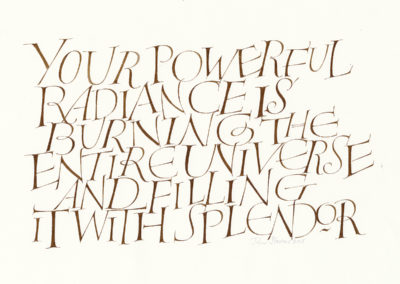 YOUR POWERFUL
RADIANCE IS
BURNING THE
ENTIRE UNIVERSE
AND FILLING
IT WITH SPLENDOR